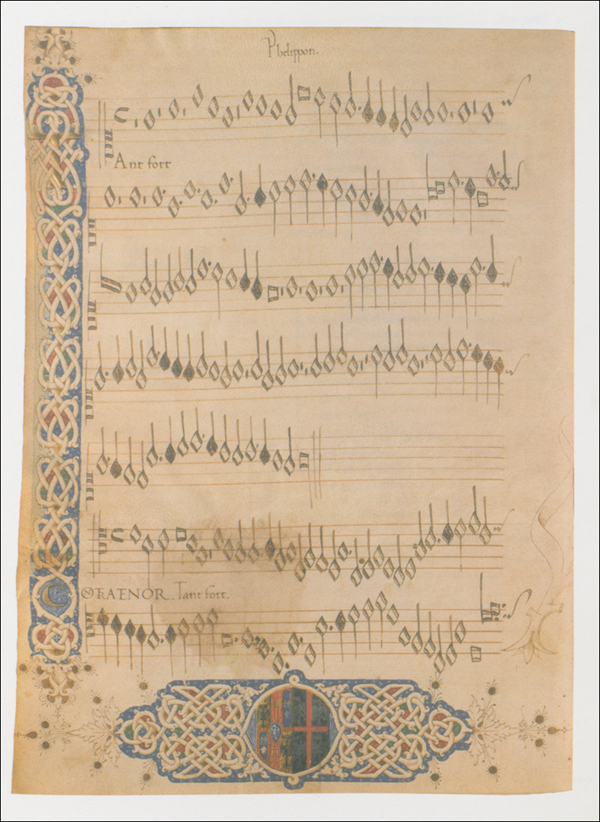 Phelippon.
Ant fort
Tant fort.